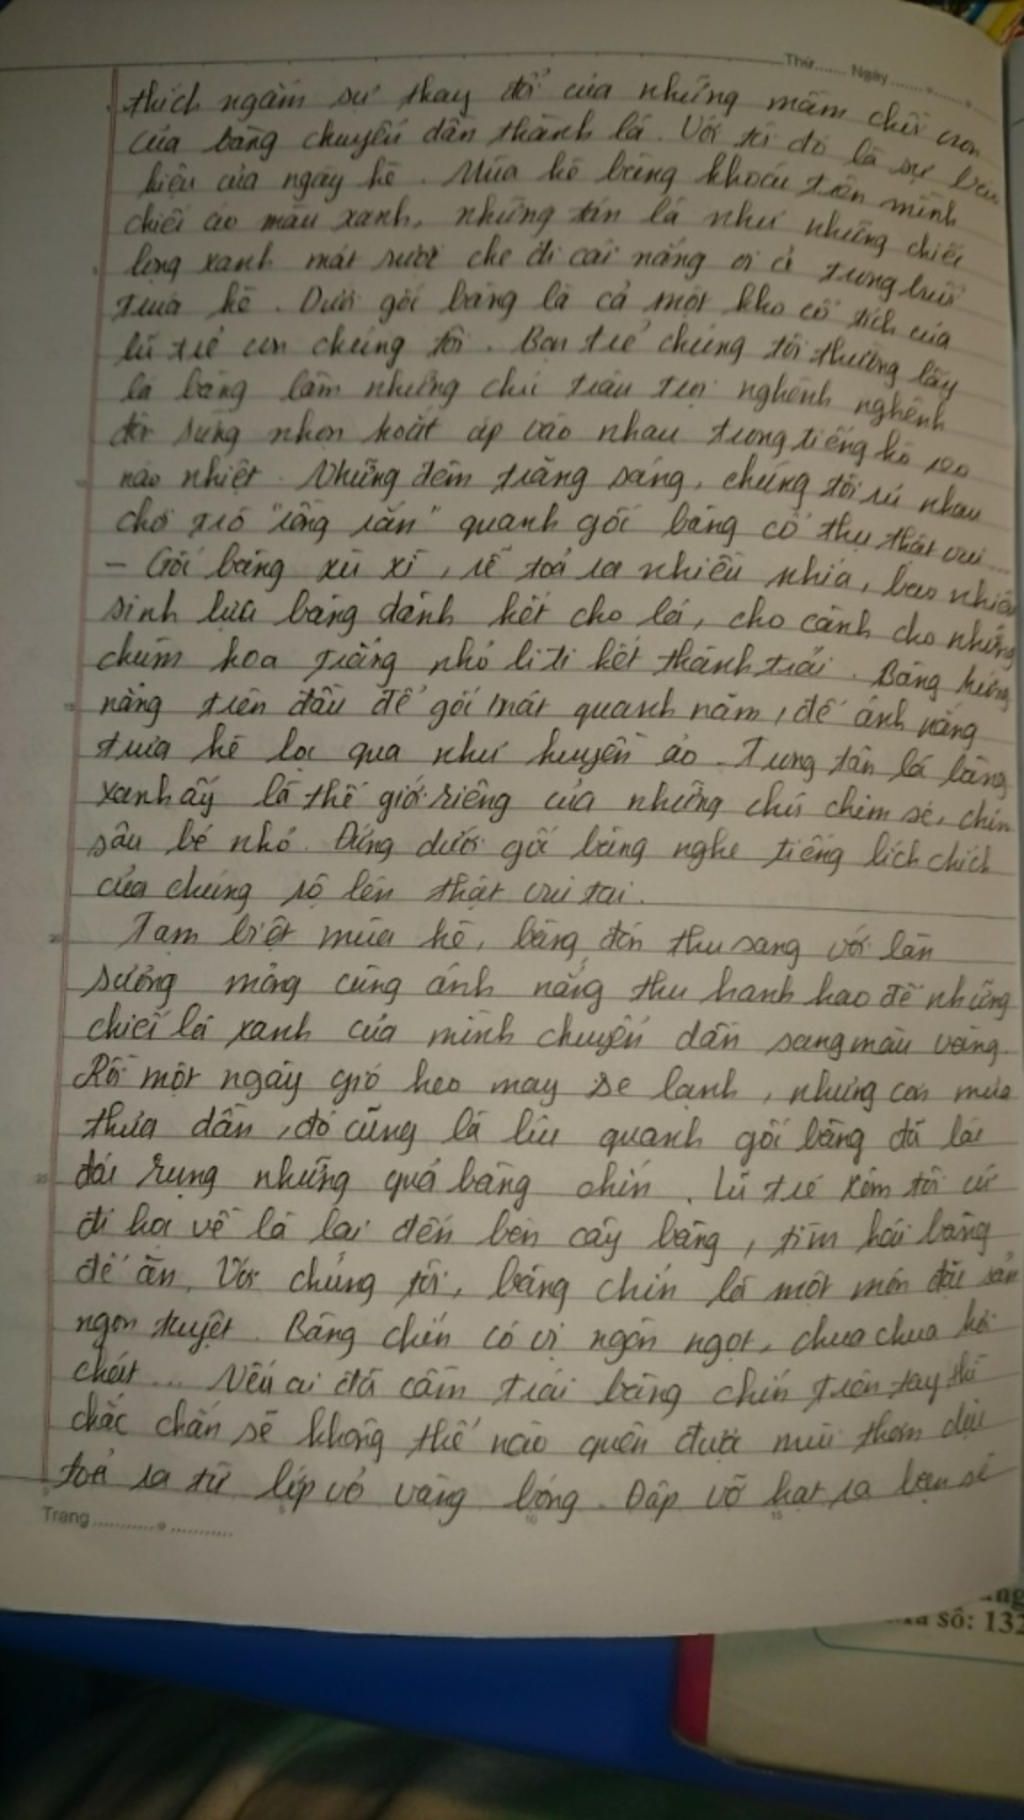 Thứ...... Ngày......
thích ngắm sự thay đổi của những mầm chồi non
của bàng chuyển dần thành lá. Với tôi đó là sự báo
hiệu của ngày hè. Mùa hè bàng khoác trên mình
chiếc áo màu xanh, những tán lá như những chiếc
lọng xanh mát rượi che đi cái nắng oi ả trong buổi
trưa hè. Dưới gốc bàng là cả một kho cổ tích của
lũ trẻ con chúng tôi. Bọn trẻ chúng tôi thường lấy
lá bàng làm những chú trâu trọi nghênh nghênh
đôi sừng nhọn hoắt áp vào nhau trong tiếng hò reo
náo nhiệt. Những đêm trăng sáng, chúng tôi rủ nhau
chơi trò "rồng rắn" quanh gốc bàng cổ thụ thật vui...
- Gốc bàng xù xì, rễ toả ra nhiều phía, bao nhiêu
sinh lực bàng dành hết cho lá, cho cành cho những
chùm hoa trắng nhỏ li ti kết thành trái. Bàng hứng
nắng trên đầu để gốc mát quanh năm, để ánh nắng
trưa hè lọt qua như huyền ảo. Trong tán lá bàng
xanh ấy là thế giới riêng của những chú chim sẻ, chim
sâu bé nhỏ. Đứng dưới gốc bàng nghe tiếng lích chích
của chúng rộ lên thật vui tai.
Tạm biệt mùa hè, bàng đón thu sang với làn
sương mỏng cùng ánh nắng thu hanh hao để những
chiếc lá xanh của mình chuyển dần sang màu vàng.
Rồi một ngày gió heo may se lạnh, những cơn mưa
thưa dần, đó cũng là lúc quanh gốc bàng đã lác
đác rụng những quả bàng chín. Lũ trẻ xóm tôi cứ
đi học về là lại đến bên cây bàng, tìm hái bàng
để ăn. Với chúng tôi, bàng chín là một món đặc sản
ngon tuyệt. Bàng chín có vị ngòn ngọt, chua chua hơi
chát... Nếu ai đã cầm trái bàng chín trên tay thì
chắc chắn sẽ không thể nào quên được mùi thơm dịu
toả ra từ lớp vỏ vàng bóng. Đập vỡ hạt ra bạn sẽ
Trang............
số: 132